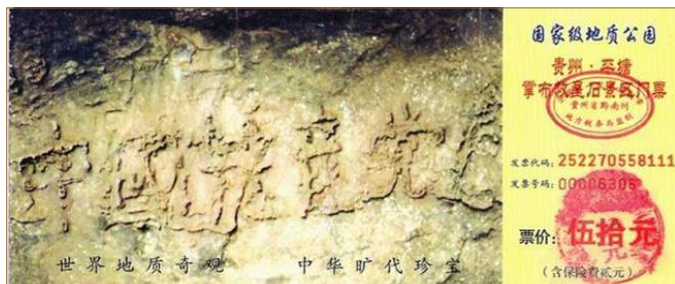 中國共产党
世界地质奇观 中华旷代珍宝
国家级地质公园
贵州·平塘
掌布藏字石景区门票
贵州省黔南州
地方税务局监制
发票代码：252270558111
发票号码：00006306
票价：伍拾元
（含保险费贰元）